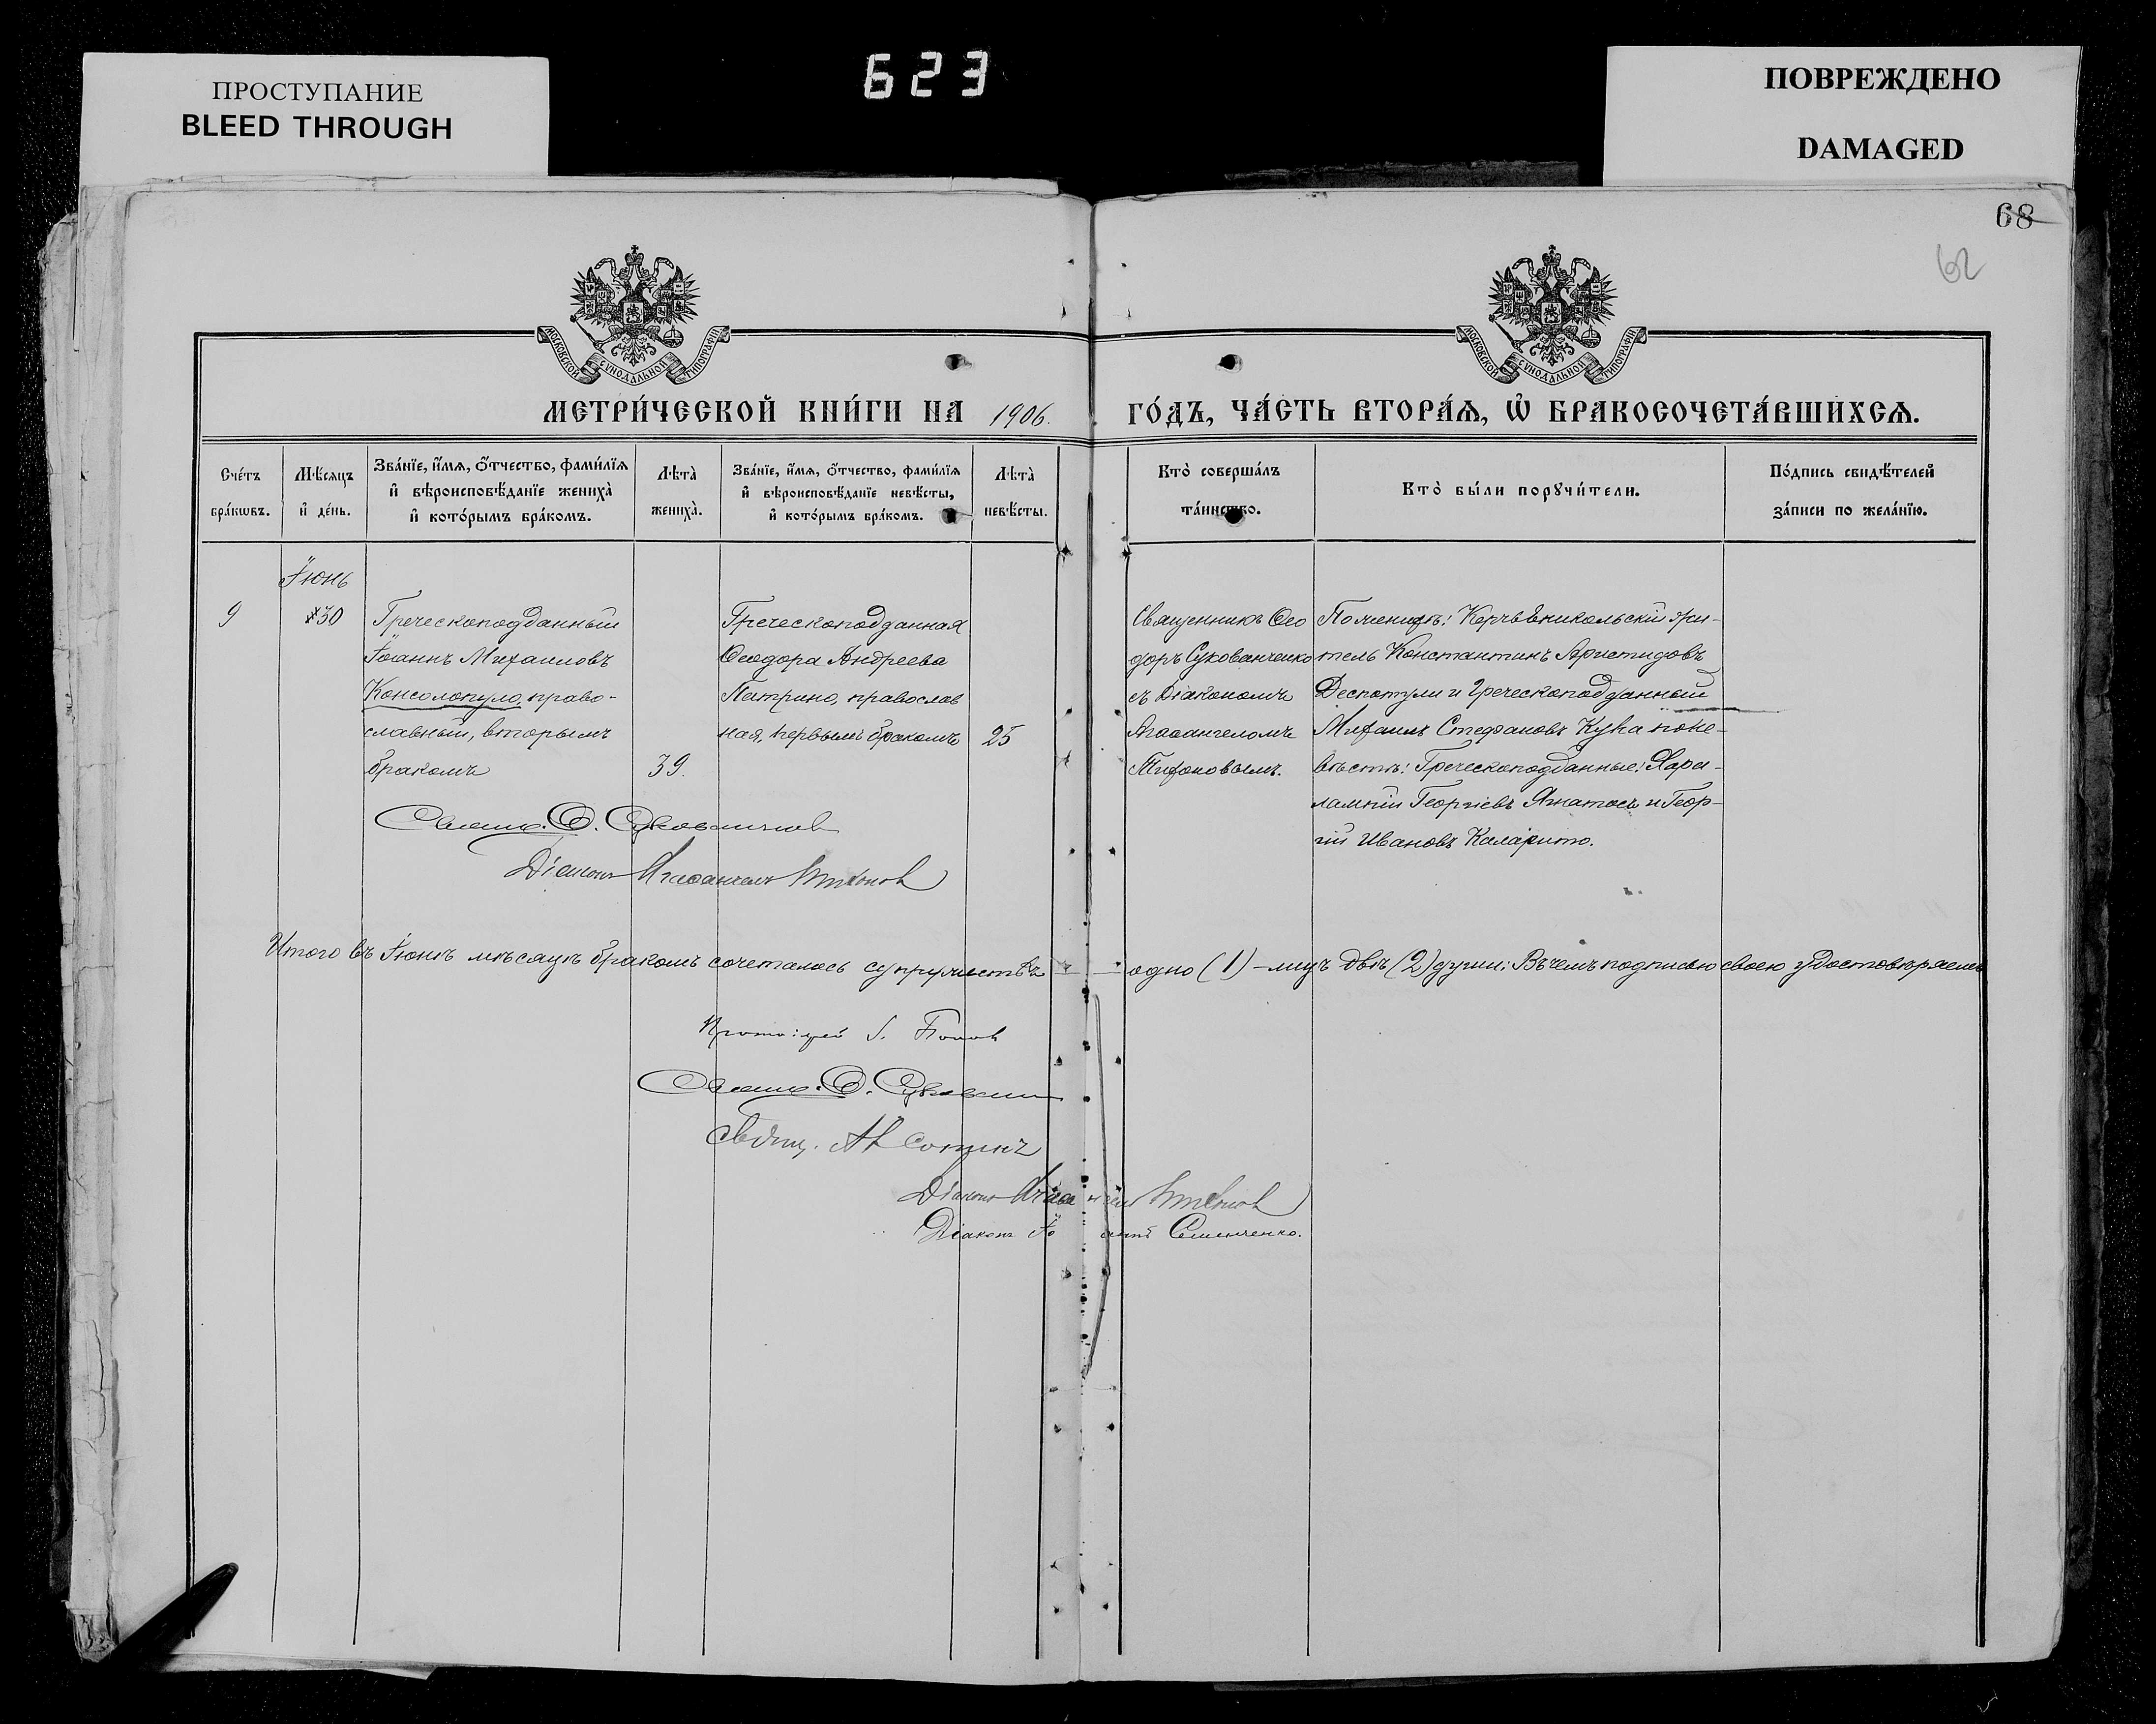 ПРОСТУПАНИЕ
BLEED THROUGH
623
ПОВРЕЖДЕНО
DAMAGED
68
62
МОСКОВСКОЙ СѴНОДАЛЬНОЙ ТИПОГРАФІИ
МОСКОВСКОЙ СѴНОДАЛЬНОЙ ТИПОГРАФІИ
МЕТРИ́ЧЕСКОЙ КНИ́ГИ НА 1906. ГО́ДЪ, ЧА́СТЬ ВТОРА́Ѧ, Ѡ҆ БРАКОСОЧЕТА́ВШИХСѦ.
Сче́тъ
бра́кѡвъ.
Мѣ́сѧцъ
и҆ де́нь.
Зва́нїе, и҆́мѧ, ѻ҆́тчество, фами́лїѧ
и҆ вѣроисповѣ́данїе жениха̀
и҆ кото́рымъ бра́комъ.
Лѣта̀
жениха̀.
Зва́нїе, и҆́мѧ, ѻ҆́тчество, фами́лїѧ
и҆ вѣроисповѣ́данїе невѣ́сты,
и҆ кото́рымъ бра́комъ.
Лѣта̀
невѣ́сты.
Кто̀ соверша́лъ
та́инство.
Кто̀ бы́ли порꙋчи́тели.
По́дпись свидѣ́телей
за́писи по жела́нїю.
Іюнь
9
30
Греческоподданный
Іоаннъ Михаиловъ
Консолопуло, право-
славный, вторымъ
бракомъ
39.
Греческоподданная
Ѳеодора Андреева
Патрино, православ
ная, первымъ бракомъ
25
Священникъ Ѳео
доръ Сукованченко
съ Діакономъ
Агаѳангеломъ
Тихоновымъ.
По жениху: Керчьеникольскій жи-
тель Константинъ Аристидовъ
Деспотули и греческоподданный
Михаилъ Стефановъ Кука по не-
вѣстѣ: Греческоподданные: Хара-
лампій Георгіевъ Игнатосъ и Геор-
гій Ивановъ Каларито.
Діаконъ Агаѳангелъ Тихонов
Итого въ Іюнѣ мѣсяцѣ бракомъ сочеталось супружествъ — одно (1) – лицъ двѣ (2) души; Въ чемъ подписью своею удостовѣряемъ
Протоіерей І. Попов
Діаконъ Агаѳангелъ Тихонов
Діаконъ Іоаннъ Семенченко.